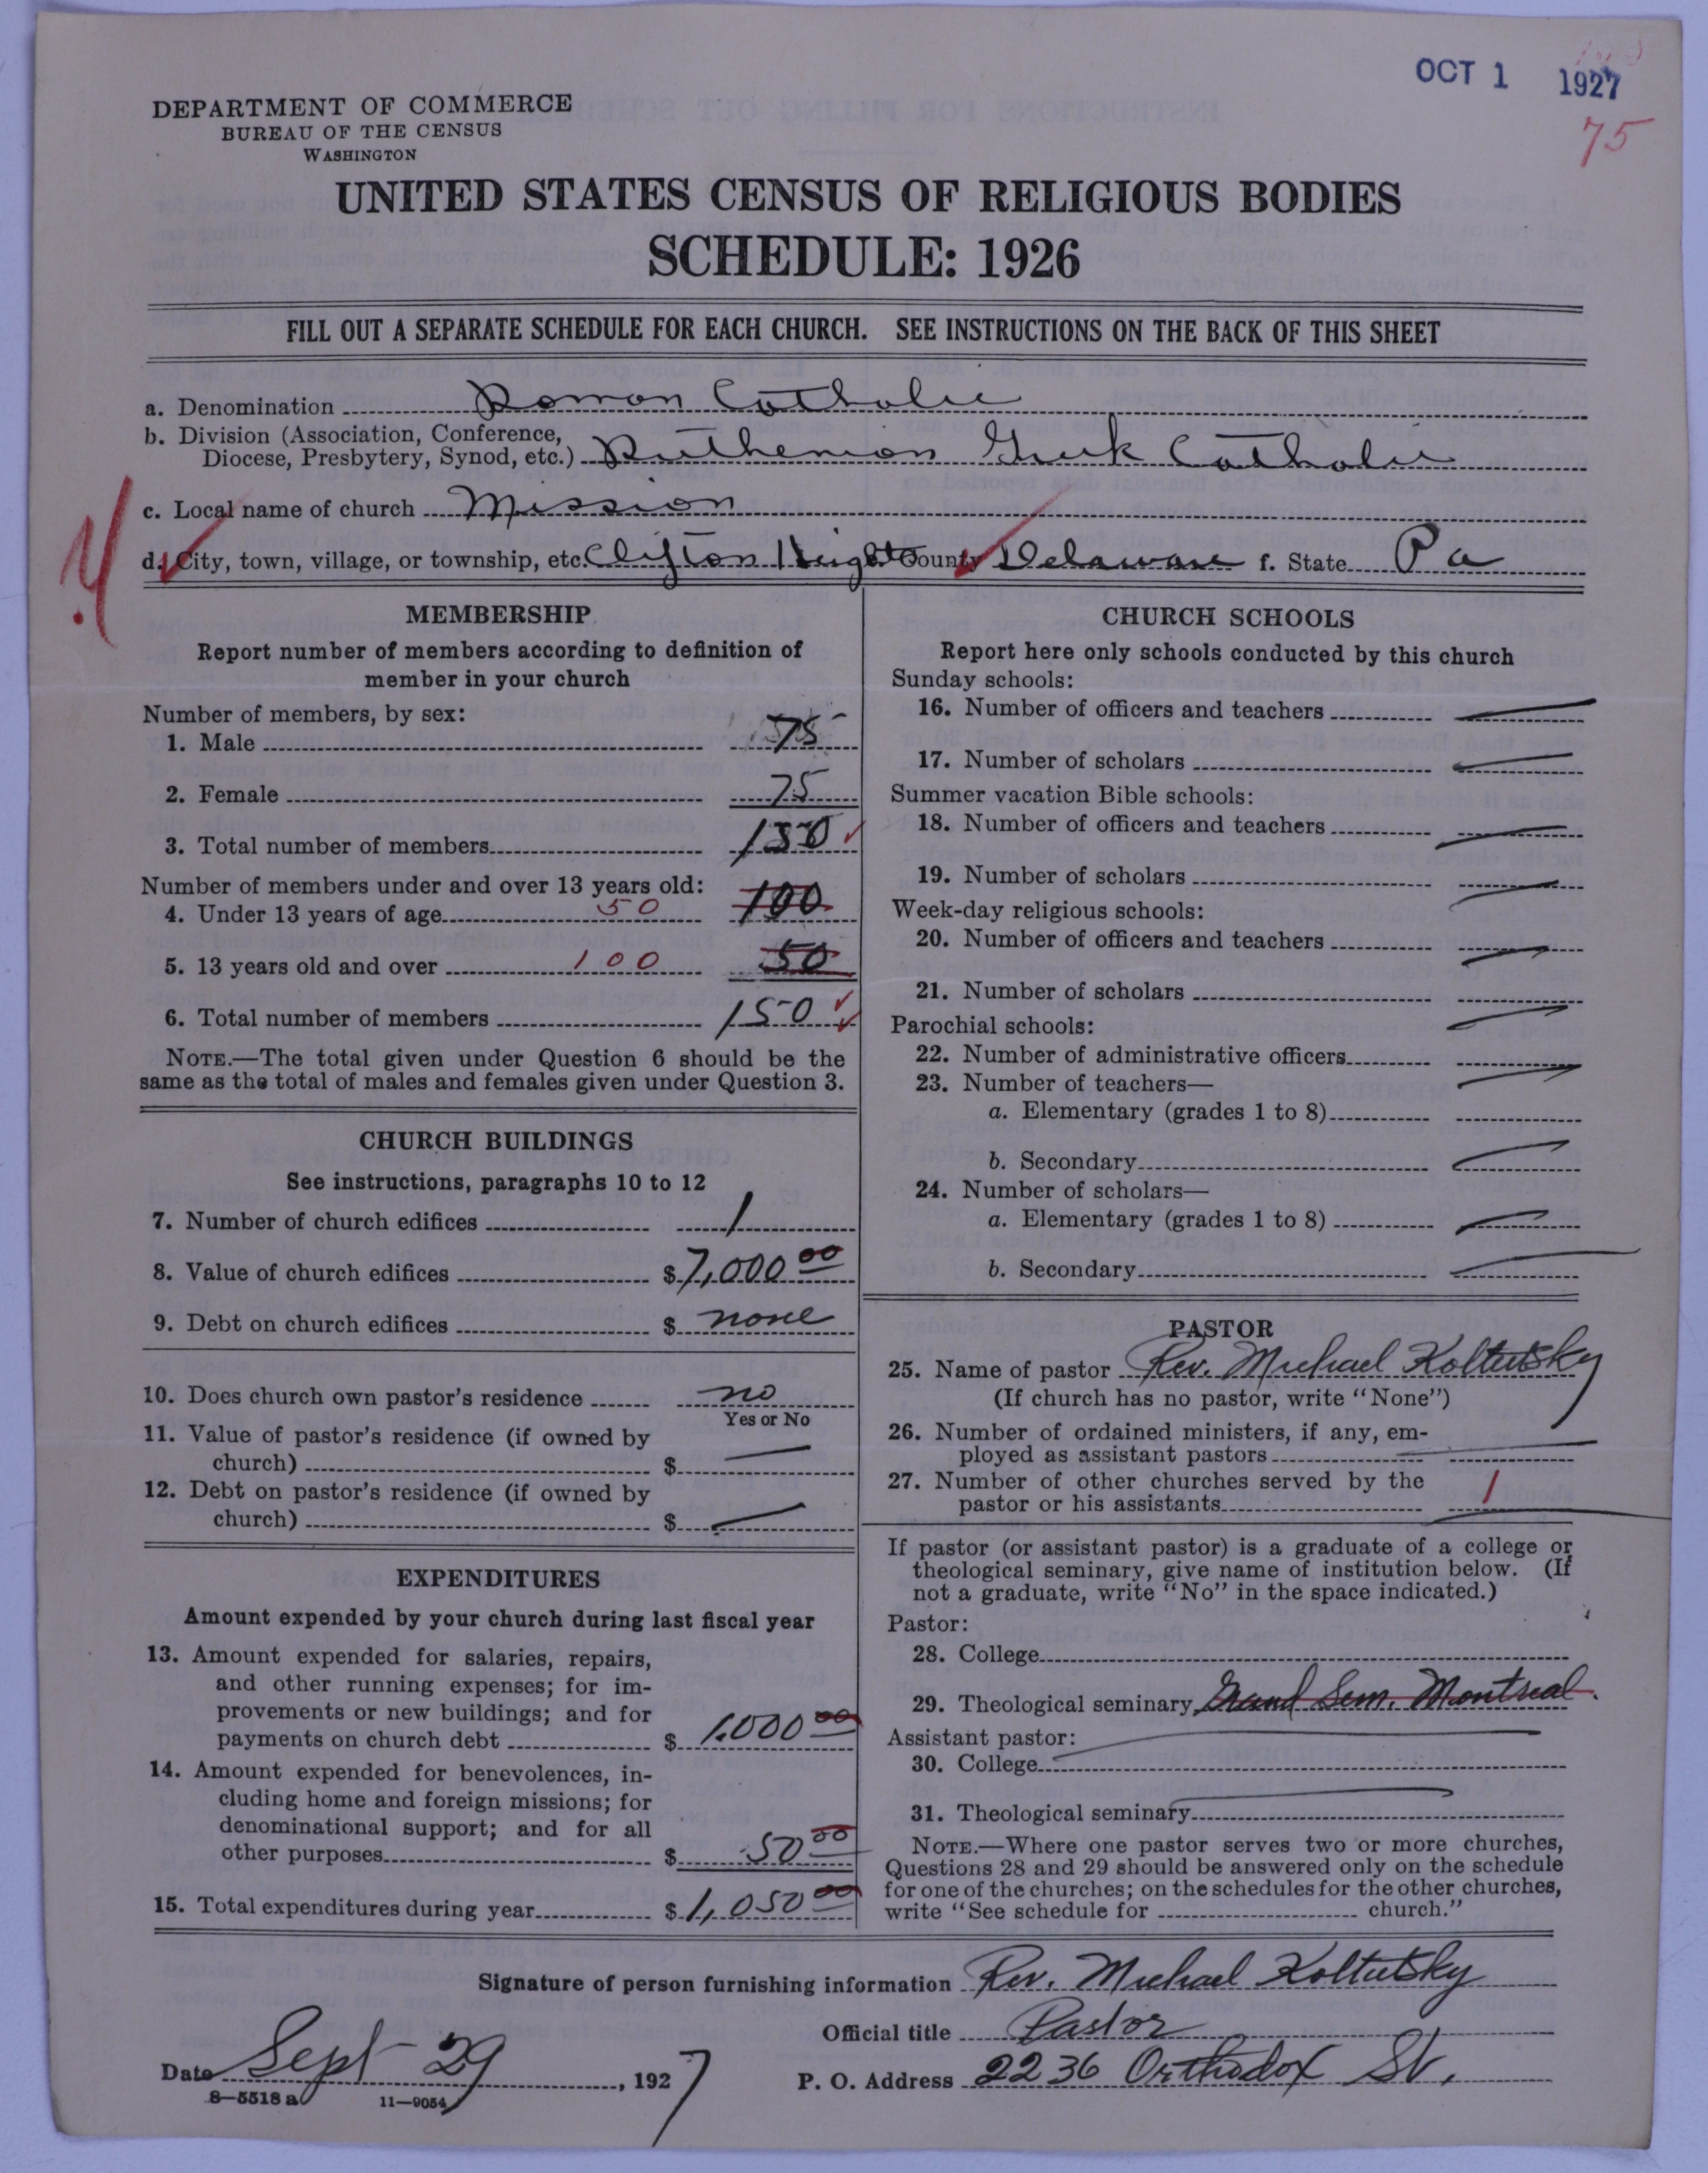 OCT 1 1927
75
DEPARTMENT OF COMMERCE
BUREAU OF THE CENSUS
WASHINGTON
UNITED STATES CENSUS OF RELIGIOUS BODIES
SCHEDULE: 1926
FILL OUT A SEPARATE SCHEDULE FOR EACH CHURCH. SEE INSTRUCTIONS ON THE BACK OF THIS SHEET
a. Denomination Roman Catholic
b. Division (Association, Conference,
Diocese, Presbytery, Synod, etc.) Ruthenian Greek Catholic
c. Local name of church Mission
d. City, town, village, or township, etc. Clifton Heights County Delaware f. State Pa
MEMBERSHIP
Report number of members according to definition of
member in your church
Number of members, by sex:
1. Male 75
2. Female 75
3. Total number of members 150
Number of members under and over 13 years old:
4. Under 13 years of age 50 100
5. 13 years old and over 100 50
6. Total number of members 150
NOTE.—The total given under Question 6 should be the
same as the total of males and females given under Question 3.
CHURCH BUILDINGS
See instructions, paragraphs 10 to 12
7. Number of church edifices 1
8. Value of church edifices $7,000 00
9. Debt on church edifices $ none
10. Does church own pastor's residence no
Yes or No
11. Value of pastor's residence (if owned by
church) $ —
12. Debt on pastor's residence (if owned by
church) $ —
EXPENDITURES
Amount expended by your church during last fiscal year
13. Amount expended for salaries, repairs,
and other running expenses; for im-
provements or new buildings; and for
payments on church debt $ 1,000 00
14. Amount expended for benevolences, in-
cluding home and foreign missions; for
denominational support; and for all
other purposes $ 50 00
15. Total expenditures during year $1,050 00
CHURCH SCHOOLS
Report here only schools conducted by this church
Sunday schools:
16. Number of officers and teachers —
17. Number of scholars —
Summer vacation Bible schools:
18. Number of officers and teachers —
19. Number of scholars —
Week-day religious schools:
20. Number of officers and teachers —
21. Number of scholars —
Parochial schools:
22. Number of administrative officers —
23. Number of teachers—
a. Elementary (grades 1 to 8) —
b. Secondary —
24. Number of scholars—
a. Elementary (grades 1 to 8) —
b. Secondary —
PASTOR
25. Name of pastor Rev. Michael Koltutsky
(If church has no pastor, write "None")
26. Number of ordained ministers, if any, em-
ployed as assistant pastors —
27. Number of other churches served by the
pastor or his assistants 1
If pastor (or assistant pastor) is a graduate of a college or
theological seminary, give name of institution below. (If
not a graduate, write "No" in the space indicated.)
Pastor:
28. College
29. Theological seminary Grand Sem. Montreal.
Assistant pastor:
30. College —
31. Theological seminary —
NOTE.—Where one pastor serves two or more churches,
Questions 28 and 29 should be answered only on the schedule
for one of the churches; on the schedules for the other churches,
write "See schedule for church."
Signature of person furnishing information Rev. Michael Koltutsky
Official title Pastor
Date Sept 29, 1927
P. O. Address 2236 Orthodox St.
8—5518 a 11—9054